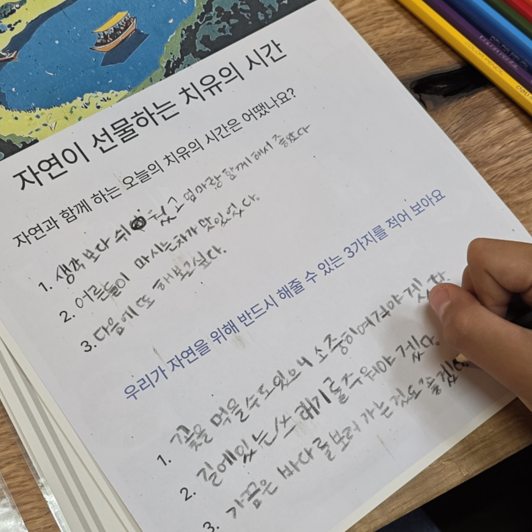 자연이 선물하는 치유의 시간
자연과 함께 하는 오늘의 치유의 시간은 어땠나요?
1. 생각보다 쉬웠고 엄마랑 함께 해서 좋았다
2. 어른들이 마시는차가 맛있었다.
3. 다음에 또 해보고싶다.
우리가 자연을 위해 반드시 해줄 수 있는 3가지를 적어 보아요
1. 꽃을 먹을수도있으니 소중히여겨야겠다.
2. 길에있는 쓰래기를 주워야겠다.
3. 가끔은 바다를보러 가는것도